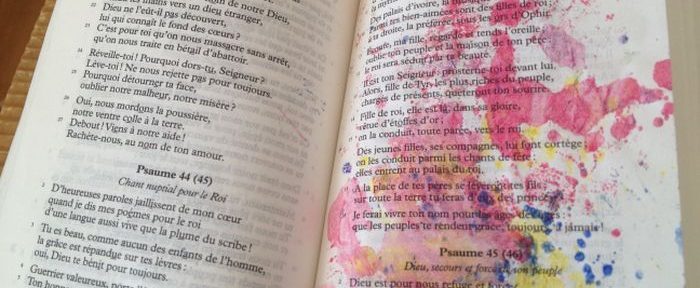 mains vers un dieu étranger,
Dieu ne l'eût-il pas découvert,
lui qui connaît le fond des cœurs ?
C'est pour toi qu'on nous massacre sans arrêt,
qu'on nous traite en bétail d'abattoir.
Réveille-toi ! Pourquoi dors-tu, Seigneur ?
Lève-toi ! Ne nous rejette pas pour toujours.
Pourquoi détourner ta face,
oublier notre malheur, notre misère ?
Oui, nous mordons la poussière,
notre ventre colle à la terre.
Debout ! Viens à notre aide !
Rachète-nous, au nom de ton amour.
Psaume 44 (45)
Chant nuptial pour le Roi
D'heureuses paroles jaillissent de mon cœur
quand je dis mes poèmes pour le roi
d'une langue aussi vive que la plume du scribe !
Tu es beau, comme aucun des enfants de l'homme,
la grâce est répandue sur tes lèvres :
oui, Dieu te bénit pour toujours.
Guerrier valeureux, por
Ton hon
Des palais d'ivoire, la
Parmi tes bien-aimées sont des filles de roi ;
à ta droite, la préférée, sous les ors d'Ophir.
Écoute, ma fille, regarde et tends l'oreille ;
oublie ton peuple et la maison de ton père :
le roi sera séduit par ta beauté.
Il est ton Seigneur : prosterne-toi devant lui.
Alors, fille de Tyr, les plus riches du peuple,
chargés de présents, quêteront ton sourire.
Fille de roi, elle est là, dans sa gloire,
vêtue d'étoffes d'or ;
on la conduit, toute parée, vers le roi.
Des jeunes filles, ses compagnes, lui font cortège ;
on les conduit parmi les chants de fête :
elles entrent au palais du roi.
A la place de tes pères se lèveront tes fils ;
sur toute la terre tu feras d'eux des princes.
Je ferai vivre ton nom pour les âges des âges :
que les peuples te rendent grâce, toujours, à jamais !
Psaume 45 (46)
Dieu, secours et force de son peuple
Dieu est pour nous refuge et force